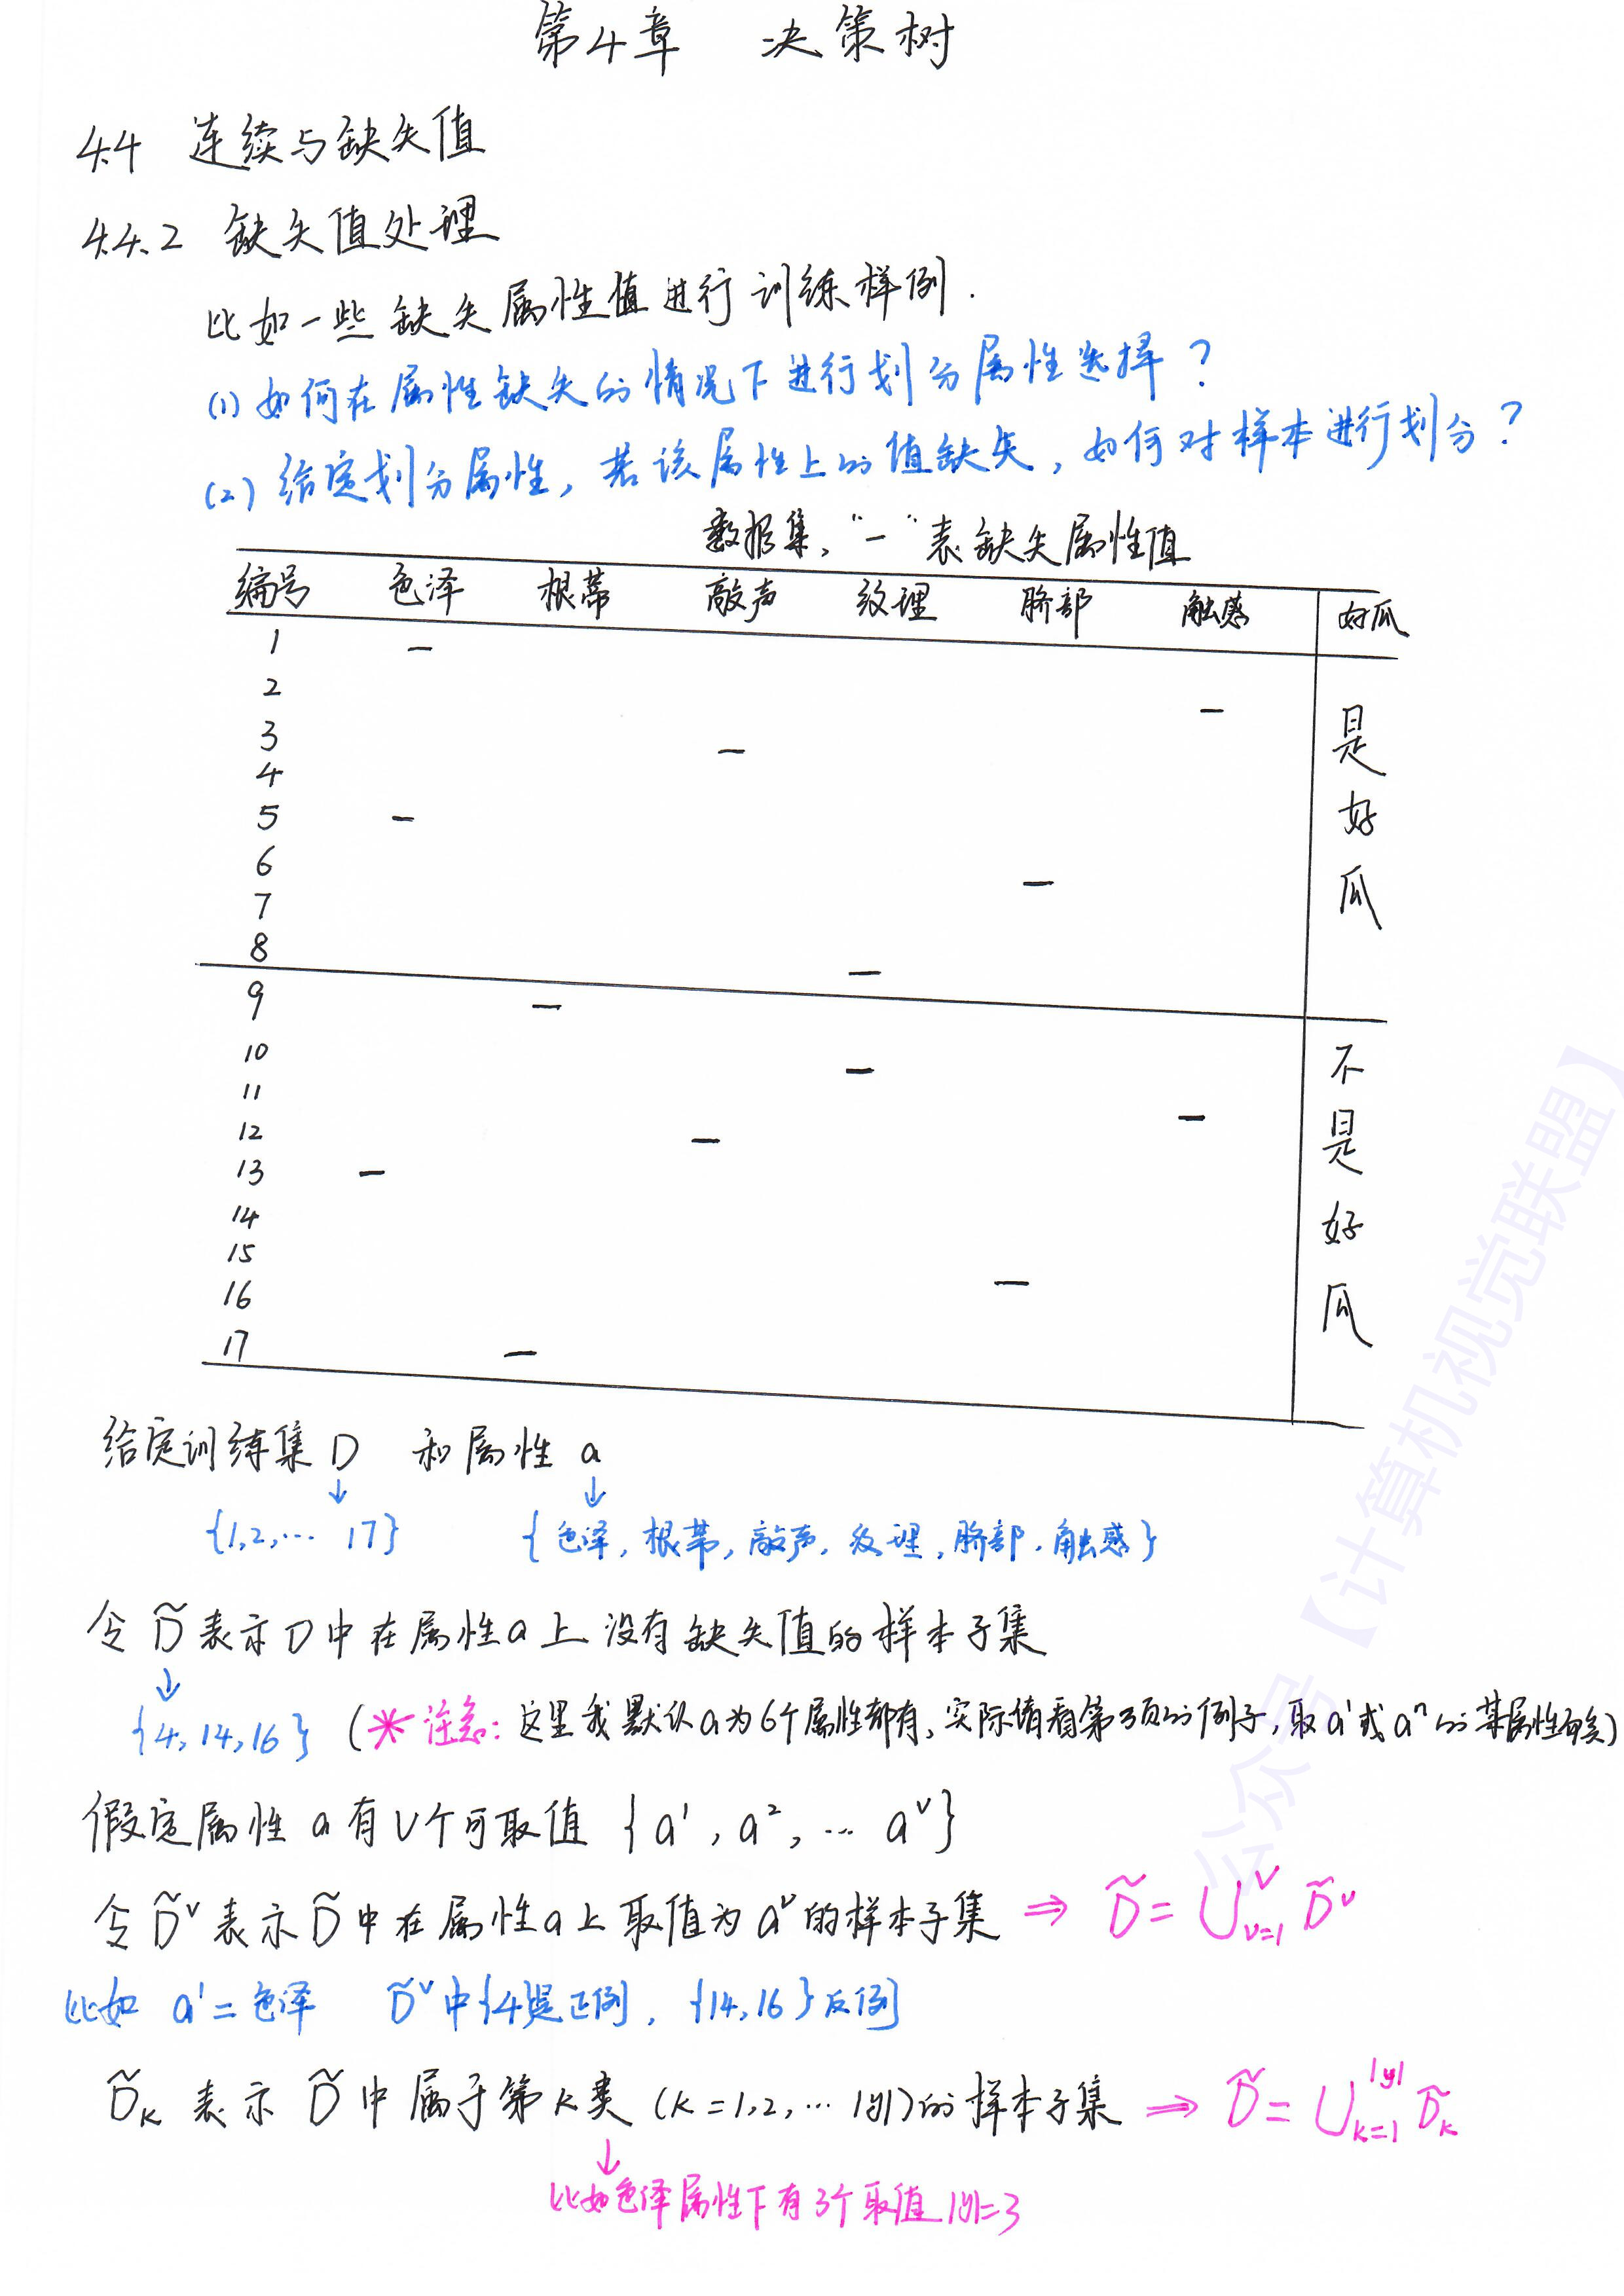 第4章 决策树
4.4 连续与缺失值
4.4.2 缺失值处理
比如一些缺失属性值进行训练样例.
(1) 如何在属性缺失的情况下进行划分属性选择?
(2) 给定划分属性, 若该属性上的值缺失, 如何对样本进行划分?
数据集, “—” 表缺失属性值
编号 色泽 根蒂 敲声 纹理 脐部 触感 好瓜
1 —
2 —
3 —
4
5 —
6
7 —
8 —
是好瓜
9 —
10 —
11 —
12 —
13 —
14
15
16 —
17 —
不是好瓜
给定训练集 D 和属性 a
↓ ↓
{1,2,… 17} {色泽, 根蒂, 敲声, 纹理, 脐部, 触感}
令 D̃ 表示 D 中在属性 a 上没有缺失值的样本子集
↓
{4, 14, 16} (* 注意: 这里我默认 a 为 6个属性都有, 实际请看第3页的例子, 取 a¹ 或 aⁿ 的某属性)
假定属性 a 有 V 个可取值 {a¹, a², … aᵛ}
令 D̃ᵛ 表示 D̃ 中在属性 a 上取值为 aᵛ 的样本子集 ⇒ D̃ = ⋃ᵥ₌₁ⱽ D̃ᵛ
比如 a¹ = 色泽 D̃ᵛ 中{4}是正例, {14,16}反例
D̃ₖ 表示 D̃ 中属于第 k 类 (k = 1,2,… |y|) 的样本子集 ⇒ D̃ = ⋃ₖ₌₁|y| D̃ₖ
↓
比如色泽属性下有 3个取值 |y|=3
公众号【计算机视觉联盟】